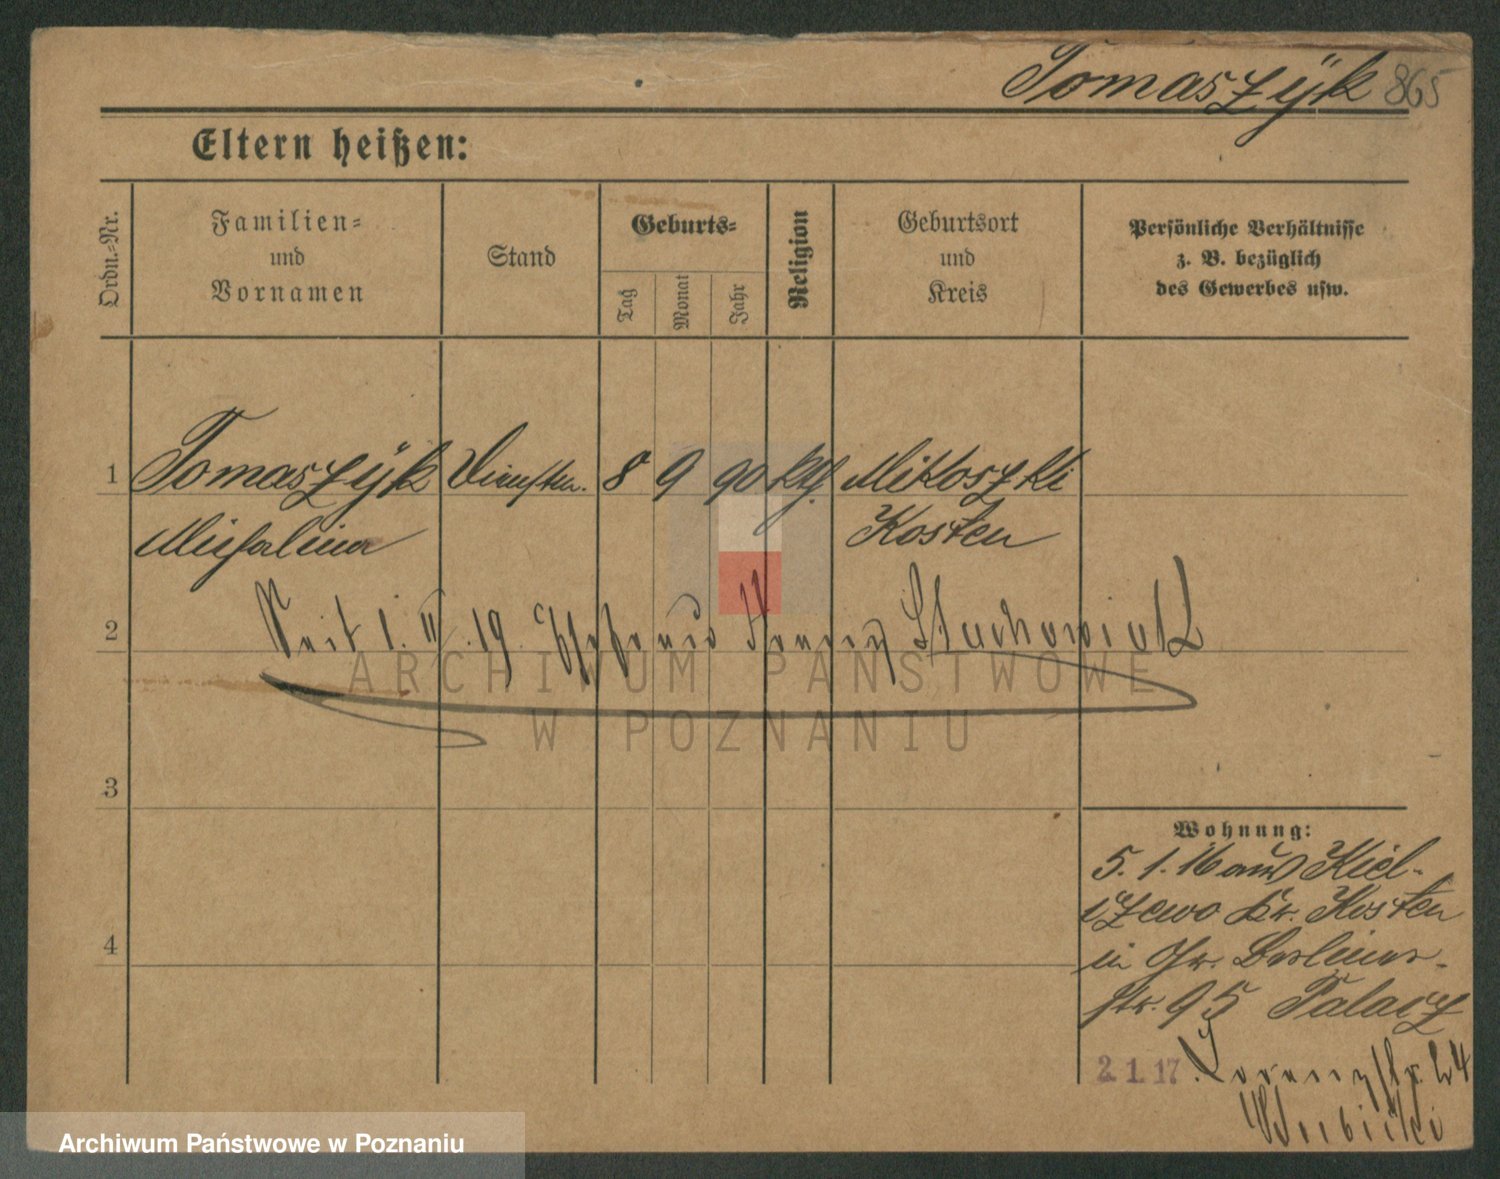 Tomaszÿk 865
Eltern heißen:
Ordn.-Nr.
Familien-
und
Vornamen
Stand
Geburts-
Tag
Monat
Jahr
Religion
Geburtsort
und
Kreis
Persönliche Verhältnisse
z. B. bezüglich
des Gewerbes usw.
1 Tomaszÿk 8 9 90 kth. Mikoszki
Michalina Kosten
2 Seit 1. II. 19. Ehefrau Stachowiak
3
4
Wohnung:
5. 1. 16 aus Kiel-
czewo Kr. Kosten
in Gr. Berliner-
str. 95 Palacz
2. 1. 17. Lorenzstr. 24
Wierbicki
ARCHIWUM PAŃSTWOWE
W POZNANIU
Archiwum Państwowe w Poznaniu